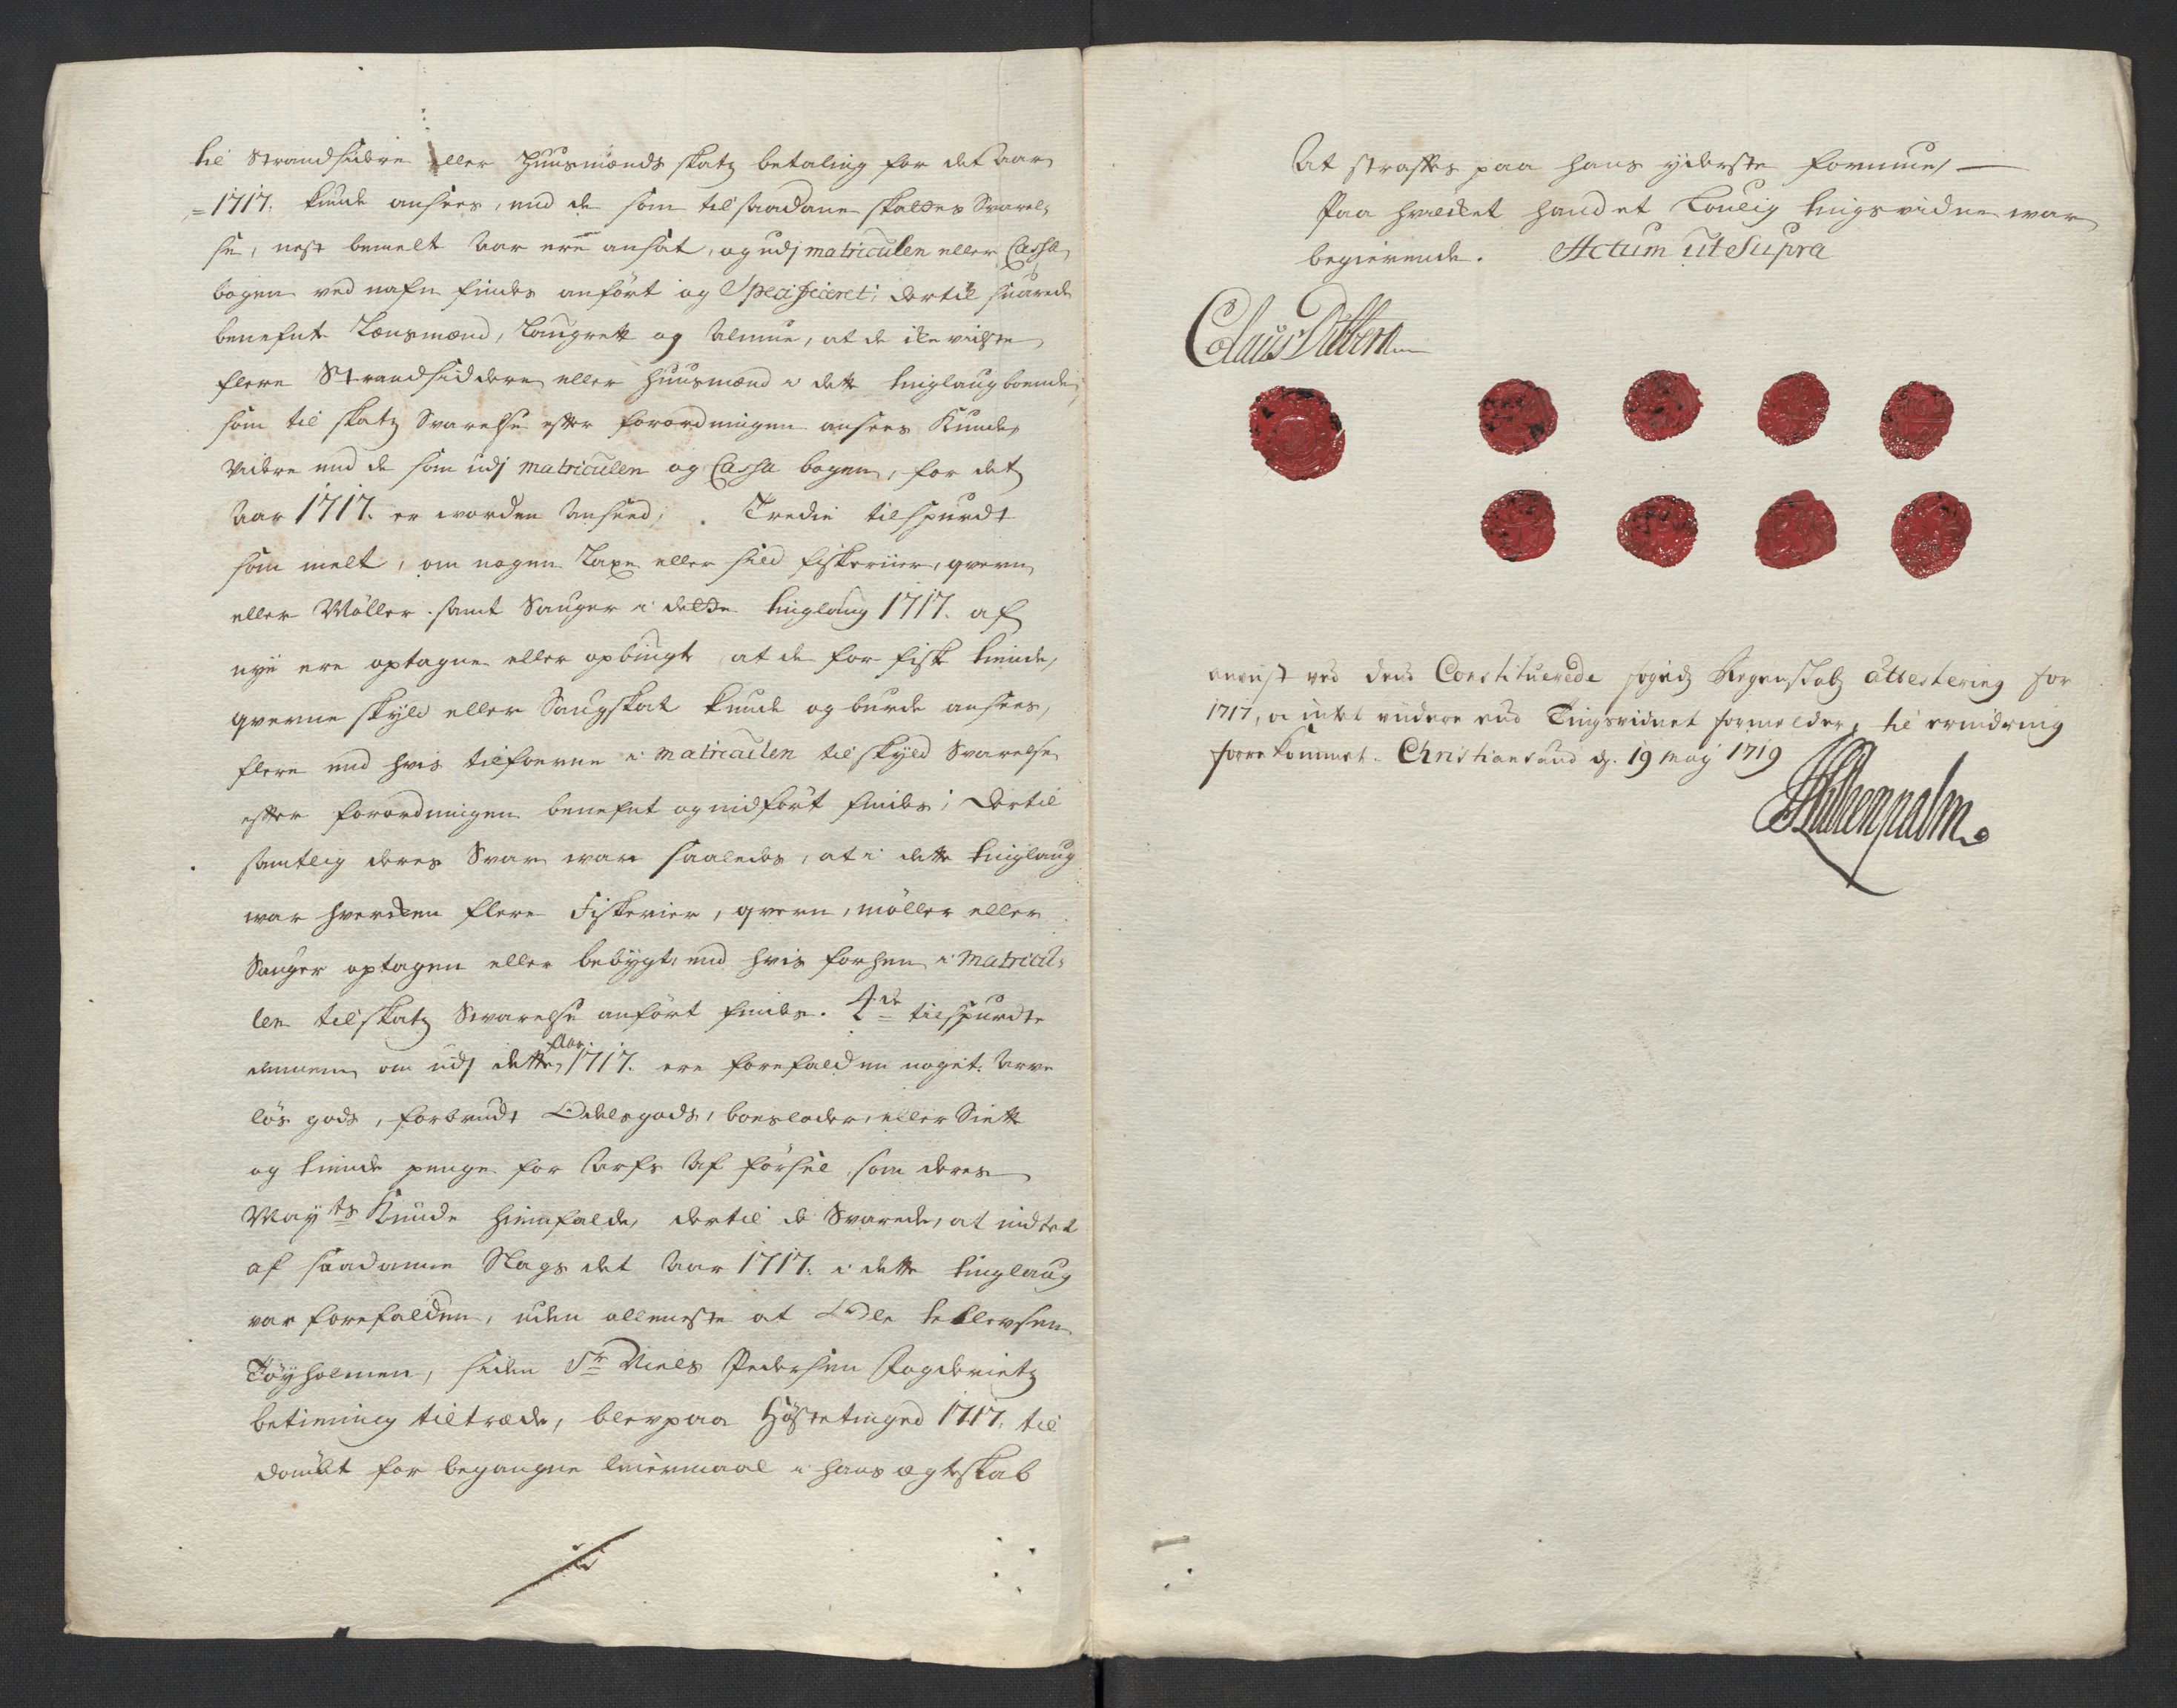 til Strandsidere eller Huusmænds skatz betaling for det Aar
=1717. kunde ansees, end de som til saadane skatters Svarel,,
se, nest bemelt Aar ere ansat, og udj matriculen eller Cassa
bogen ved nafn findes anført og Specificeret; dertil suarede
benefnte Lænsmænd, Laugrett og Almue, at de ike viiste
flere Strandsiddere eller Huusmænd i dette tinglaug boende,
som til skatz Svarelse efter forordningen ansees kunde,
Videre end de som udj matriculen og Cassa bogen, for det
Aar 1717. er worden Anseed; Tredie tilspurdt
som melt, om nogen Laxe eller sild fiskerier, qvern
eller Møller samt Sauger i dette tinglaug 1717. af
nye ere optagne eller opbŭgt at de for fisk tiende,
qverne skyld eller Saugskat kunde og burde ansees,
flere end hvis tilforne i matriculen til skyld Svarelse
efter forordningen benefnt og indført findes; Dertil
samtlig deres Svar ware saaledes, at i dette tinglaug
war hverken flere Fiskerier, qvern, møller eller
Sauger optagen eller bebygt, end hvis forhen i Matricu,,
len til skatz Svarelse anført findes. 4de tilspurdte
om udj dette Aar 1717. ere forefalden noget Arve
løs gods, forbrudt Odelsgods, boesloder, eller Siette
og tiende penge for Arfs Af førsel, som deres
Mayts Kunde hiemfalde, dertil de Svarede, at indtet
af saadanne Slags det Aar 1717. i dette tinglaug
var forefalden, uden alleneste at Ole tellevsen
Tøyholmen, siden Sr Niels Pedersen Fogderietz
betiening tiltræde, blev paa Høstetinged 1717. til
dømbt for begangne leiermaal i hans ægteskab
At straffes paa hans yderste formue, —
Paa hvilket hand et Louglig tingsvidne war
begierende. Actum ut Supra
Claus Dibbern
anvist ved dend Constituerede fogeds Regenskabs attestering for
1717, og intet videre end Tingsvidnet formelder, til erindring
forrekommet. Christiansund d. 19 maij 1719